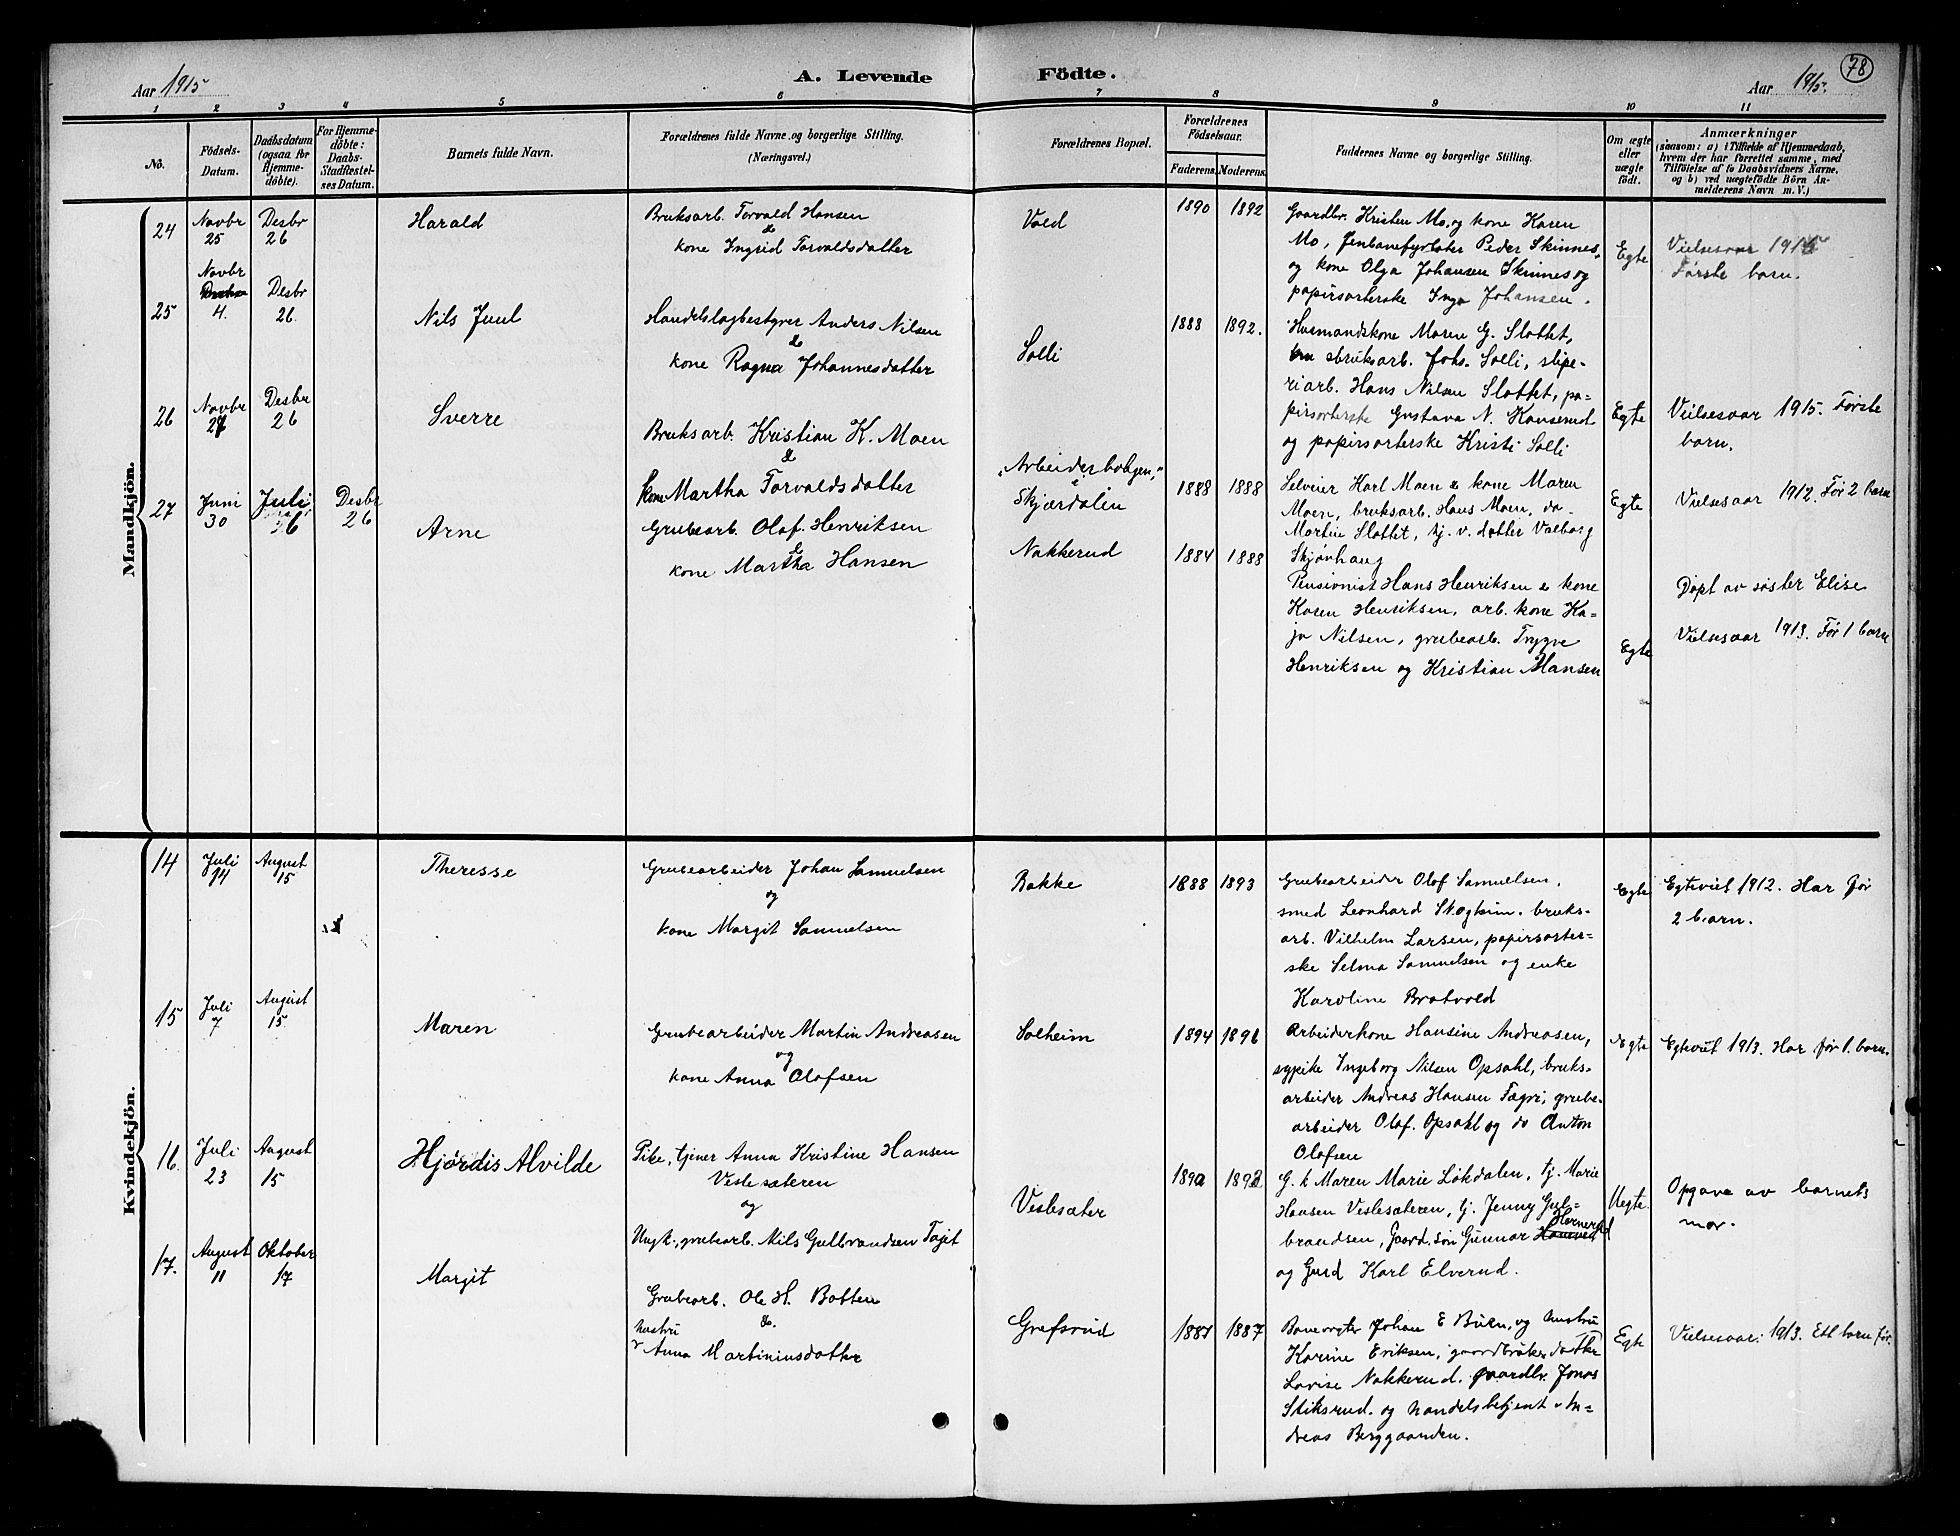 Aar 1915
A. Levende Födte.
Aar 1915.
78
1 2 3 4 5 6 7 8 9 10 11
No.
Födsels-
Datum.
Daabsdatum
(ogsaa for
Hjemme-
döbte).
For Hjemme-
döbte:
Daabs-
Stadfæstel-
ses Datum.
Barnets fulde Navn.
Forældrenes fulde Navne og borgerlige Stilling.
(Næringsvei.)
Forældrenes Bopæl.
Forældrenes
Födselsaar.
Faderens. Moderens.
Faddernes Navne og borgerlige Stilling.
Om ægte
eller
uægte
födt.
Anmærkninger
(saasom: a) i Tilfælde af Hjemmedaab,
hvem der har forrettet samme, med
Tilföielse af to Daabsvidners Navne,
og b) ved uægtefödte Börn An-
melderens Navn m. V.)
Mandkjön.
24
Novbr
25
Desbr
26
Harald
Bruksarb. Torvald Hansen
&
kone Ingrid Torvaldsdatter
Vold
1890 1892
Gaardbr. Kristen Mo, og kone Karen
Mo, Jenbanefyrbøter Peder Skinnes,
og kone Olga Johansen Skinnes og
papirsorterske Inga Johansen.
Egte
Vielsesaar 1915
Første barn.
25
Novbr
4.
Desbr
26.
Nils Juul
Handelslagbestyrer Anders Nilsen
&
kone Ragna Johannesdatter
Solli
1888 1892.
Husmandskone Maren G. Slottet,
bruksarb. Johs. Solli, slipe-
riarb. Hans Nilsen Slottet, pa-
pirsorterske Gustava N. Hanserud
og papirsorterske Kristi Solli
Egte
Vielsesaar 1915. Første
barn.
26
Novbr
28
Desbr
26
Sverre
Bruksarb. Kristian K. Moen
&
kone Martha Torvaldsdatter
"Arbeiderboligen,"
Skjærdalen
1888 1888
Selveier Karl Moen & kone Maren
Moen, bruksarb. Hans Moen, do-
Martin Slottet, tj. v. datter Valborg
Skjøvhaug
Egte
Vielsesaar 1912. Før 2 barn
27
Juni
30
Juli
26
Desbr
26
Arne
Grubearb. Olaf Henriksen
&
kone Martha Hansen
Nakkerud
1884 1888
Pensionist Hans Henriksen & kone
Karen Henriksen, arb. kone Ka-
ja Nilsen, grubearb. Trygve
Henriksen og Kristian Hansen
Egte
Døpt av søster Elise
Vielsesaar 1913. Før 1 barn
Kvindekjön.
14
Juli
14
August
15
Theresse
Grubearbeider Johan Samuelsen
og
kone Margit Samuelsen
Bakke
1888 1893
Grubearbeider Olof Samuelsen,
smed Leonhard Skogheim. bruks-
arb. Vilhelm Larsen, papirsorter-
ske Selma Samuelsen og enke
Karoline Bratvold
Egte
Egteviet 1912. Har før
2 barn.
15
Juli
7
August
15.
Maren
Grubearbeider Martin Andreasen
og
kone Anna Olafsen
Solheim
1894 1896
Arbeiderkone Hansine Andreasen,
sypike Ingeborg Nilsen Opsahl, bruks-
arbeider Andreas Hansen Fagri, grube-
arbeider Olaf. Opsahl og do Anton
Olafsen
Egte
Egteviet 1913. Har før 1. barn.
16.
Juli
23
August
15
Hjørdis Alvilde
Pike, tjener Anna Kristine Hansen
Veslesæteren
og
Ungk., grubearb. Nils Gulbrandsen Fajit
Veslesæter
1890 1892
G. k Maren Marie Løkdalen, tj. Marie
Hansen Veslesæteren, tj. Jenny Gul-
brandsen, Gaard. søn Gunnar Hornerud
og Gurd Karl Elverud.
Uegte.
Opgave av barnets
mor.
17.
August
11
Oktober
17
Margit
Grubearb. Ole H. Botten
&
hustru
Anna Martiniusdatter
Grefsrud
1887 1887
Banevogter Johan E Buen, og hustru
Karine Eriksen, gaardbrukerdatter
Lovise Nakkerud. gaardbr. Jonas
Stiksrud. og handelsbetjent An-
dreas Berggaarden.
Egte
Vielsesaar: 1913. Ett barn før.